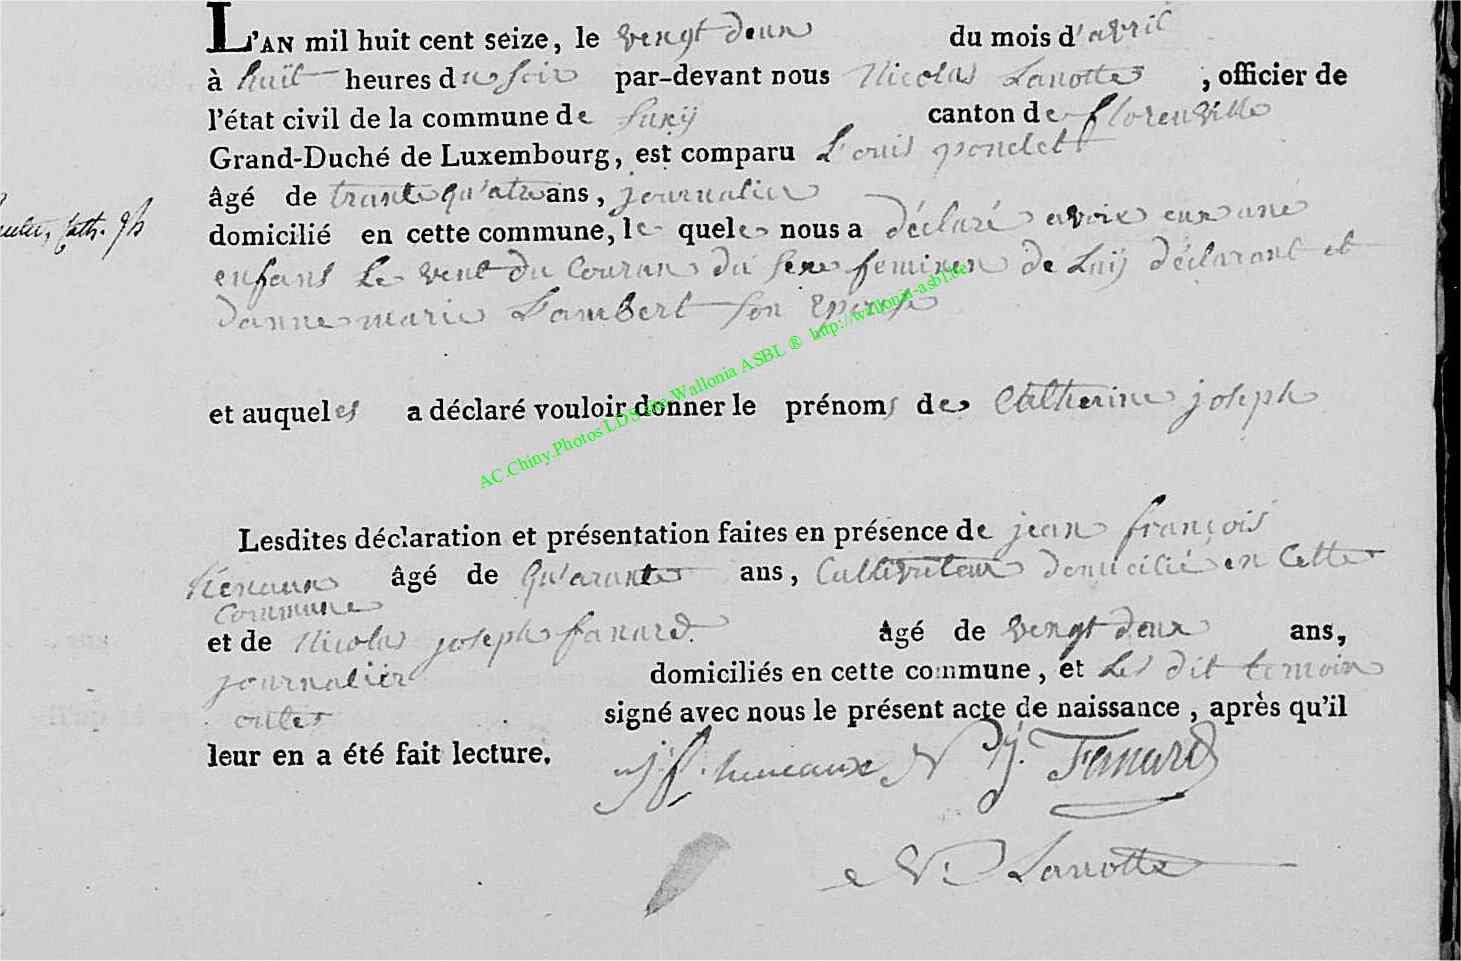 L'AN mil huit cent seize, le vengt deux du mois d'avril
à huit heures du soir par-devant nous Nicolas Lanotte, officier de
l'état civil de la commune de Suxÿ canton de florenville
Grand-Duché de Luxembourg, est comparu Louis poncelet
âgé de trante qu'atre ans, journalier
domicilié en cette commune, le quele nous a déclaré avoir eux une
enfans le vent du Couran du sexe feminen de Luÿ déclarant et
danne marie Lambert son Epouse
et auqueles a déclaré vouloir donner le prénoms de Catherine joseph
Lesdites déclaration et présentation faites en présence de jean françois
âgé de Qu'arante ans, Cultivateur domicilié en Cette
Commune
et de Nicolas joseph fanard. âgé de vengt deux ans,
journalier domiciliés en cette commune, et Les dit temoin
signé avec nous le présent acte de naissance, après qu'il
leur en a été fait lecture.
N j. Fanard
N Lanotte
Cath. Jph
AC.Chiny.Photos LDS Wallonia ASBL ® http://wallonia-asbl.be